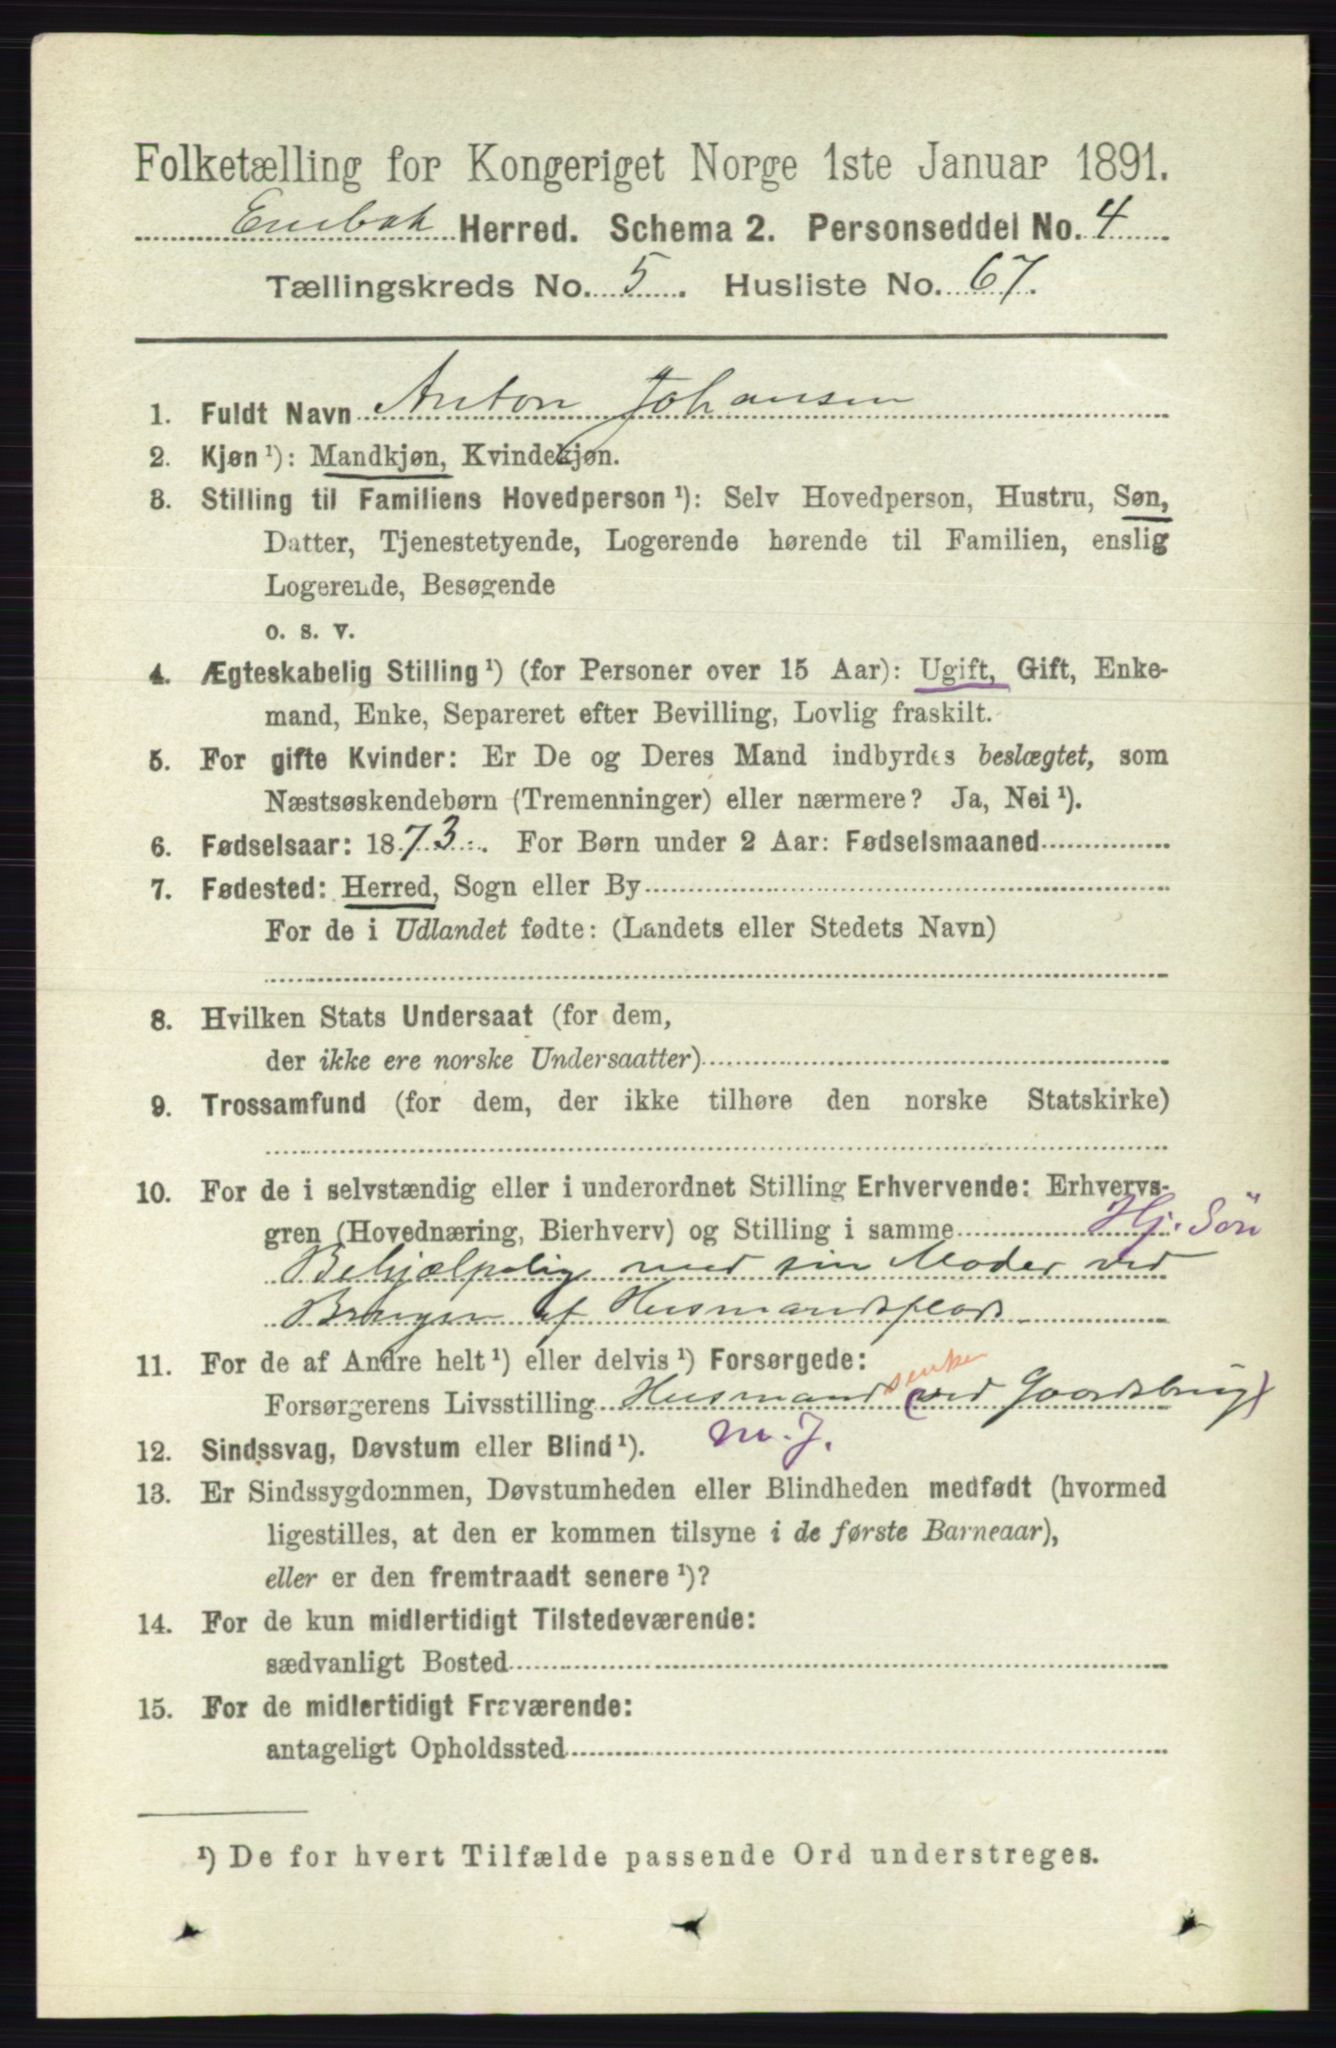 Folketælling for Kongeriget Norge 1ste Januar 1891.
Enebak Herred. Schema 2. Personseddel No. 4
Tællingskreds No. 5. Husliste No. 67.
1. Fuldt Navn Anton Johansen
2. Kjøn ¹): Mandkjøn, Kvindekjøn.
3. Stilling til Familiens Hovedperson ¹): Selv Hovedperson, Hustru, Søn,
Datter, Tjenestetyende, Logerende hørende til Familien, enslig
Logerende, Besøgende
o. s. v.
4. Ægteskabelig Stilling ¹) (for Personer over 15 Aar): Ugift, Gift, Enke-
mand, Enke, Separeret efter Bevilling, Lovlig fraskilt.
5. For gifte Kvinder: Er De og Deres Mand indbyrdes beslægtet, som
Næstsøskendebørn (Tremenninger) eller nærmere? Ja, Nei ¹).
6. Fødselsaar: 1873. For Børn under 2 Aar: Fødselsmaaned
7. Fødested: Herred, Sogn eller By
For de i Udlandet fødte: (Landets eller Stedets Navn)
8. Hvilken Stats Undersaat (for dem,
der ikke ere norske Undersaatter)
9. Trossamfund (for dem, der ikke tilhøre den norske Statskirke)
10. For de i selvstændig eller i underordnet Stilling Erhvervende: Erhvervs-
gren (Hovednæring, Bierhverv) og Stilling i samme Hj. Sön
Behjælpelig med sin Moder ved
Brugen af Husmandsplads
11. For de af Andre helt ¹) eller delvis ¹) Forsørgede:
Forsørgerens Livsstilling Husmandsenke (ved Gaardsbrug)
12. Sindssvag, Døvstum eller Blind ¹). m. J.
13. Er Sindssygdommen, Døvstumheden eller Blindheden medfødt (hvormed
ligestilles, at den er kommen tilsyne i de første Barneaar),
eller er den fremtraadt senere ¹)?
14. For de kun midlertidigt Tilstedeværende:
sædvanligt Bosted
15. For de midlertidigt Fraværende:
antageligt Opholdssted
¹) De for hvert Tilfælde passende Ord understreges.